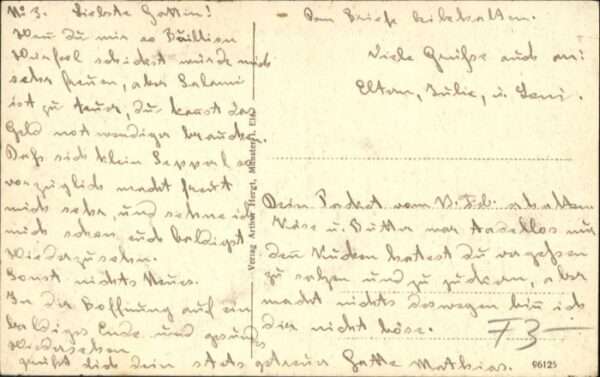 No 3. Liebste Gattin!
Wen du mir so Bäillien
Würferl schickest würde mich
sehr freuen, aber Salami
ist zu teuer, du kanst das
Geld notwendiger brauchen.
Dafs sich klein Sepperl so
vorzüglich macht freut
mich sehr, und sehne ich
mich schon euch baldigst
Wiederzusehen.
Sonst nichts Neues.
In der Hoffnung auf ein
baldiges Ende und gesundes
Wiedersehen
grüfst dich dein stets getreuer Gatte Mathias.
Verlag Arthur Hergt, Münster i. Els.
Den Briefe erhalten.
Viele Grüfse auch an:
Eltern, Julie, u. Leni.
Dein Packet vom Feb. erhalten.
Käse u. Butter war tadellos nur
den Kuchen hatest du vergefsen
zu salzen und zu zuckern, aber
macht nichts deswegen bin ich
dir nicht böse.
F3-
06125